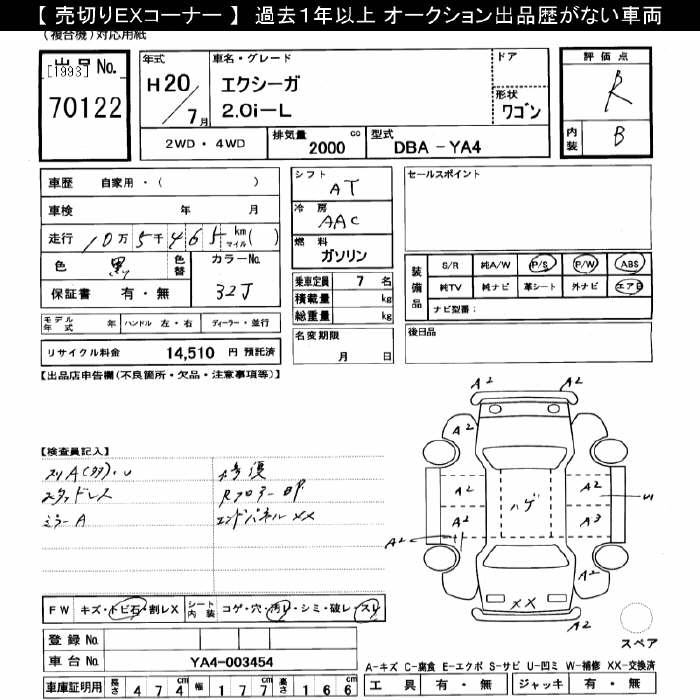 【 売切りEXコーナー 】 過去1年以上 オークション出品歴がない車両
(複合機)対応用紙
出品No.
[1993]
70122
年式
H20/7月
車名・グレード
エクシーガ
2.0i-L
ドア
形状
ワゴン
評価点
R
内装
B
2WD・4WD
排気量
2000
cc
型式
DBA - YA4
車歴 自家用・( )
車検 年 月
走行 10万5千465 km マイル( )
色 黒
色替
カラーNo.
32J
保証書 有・無
モデル年式 年 ハンドル 左・右 ディーラー・並行
リサイクル料金 14,510 円 預託済
シフト
AT
冷房
AAC
燃料
ガソリン
乗車定員 7 名
積載量 kg
総重量 kg
名変期限
月 日
セールスポイント
装備品
S/R 純A/W P/S P/W ABS
純TV 純ナビ 革シート 外ナビ エアB
ナビ型番:
後日品
【出品店申告欄(不良箇所・欠品・注意事項等)】
【検査員記入】
スタッドレス
ミラーA
修復
RフロアーBP
エンドパネルXX
A2 A2
A2 A2
A2 A2 U1
ハゲ
A2 A3
A2 A2
A2 A2
XX
A2
スペア
FW キズ・トビ石・割レX シート内装 コゲ・穴・汚レ・シミ・破レ・スレ
登録 No.
車台 No. YA4-003454
車庫証明用 長さ 474cm 幅 177cm 高さ 166cm
A-キズ C-腐食 E-エクボ S-サビ U-凹ミ W-補修 XX-交換済
工具 有・無 ジャッキ 有・無